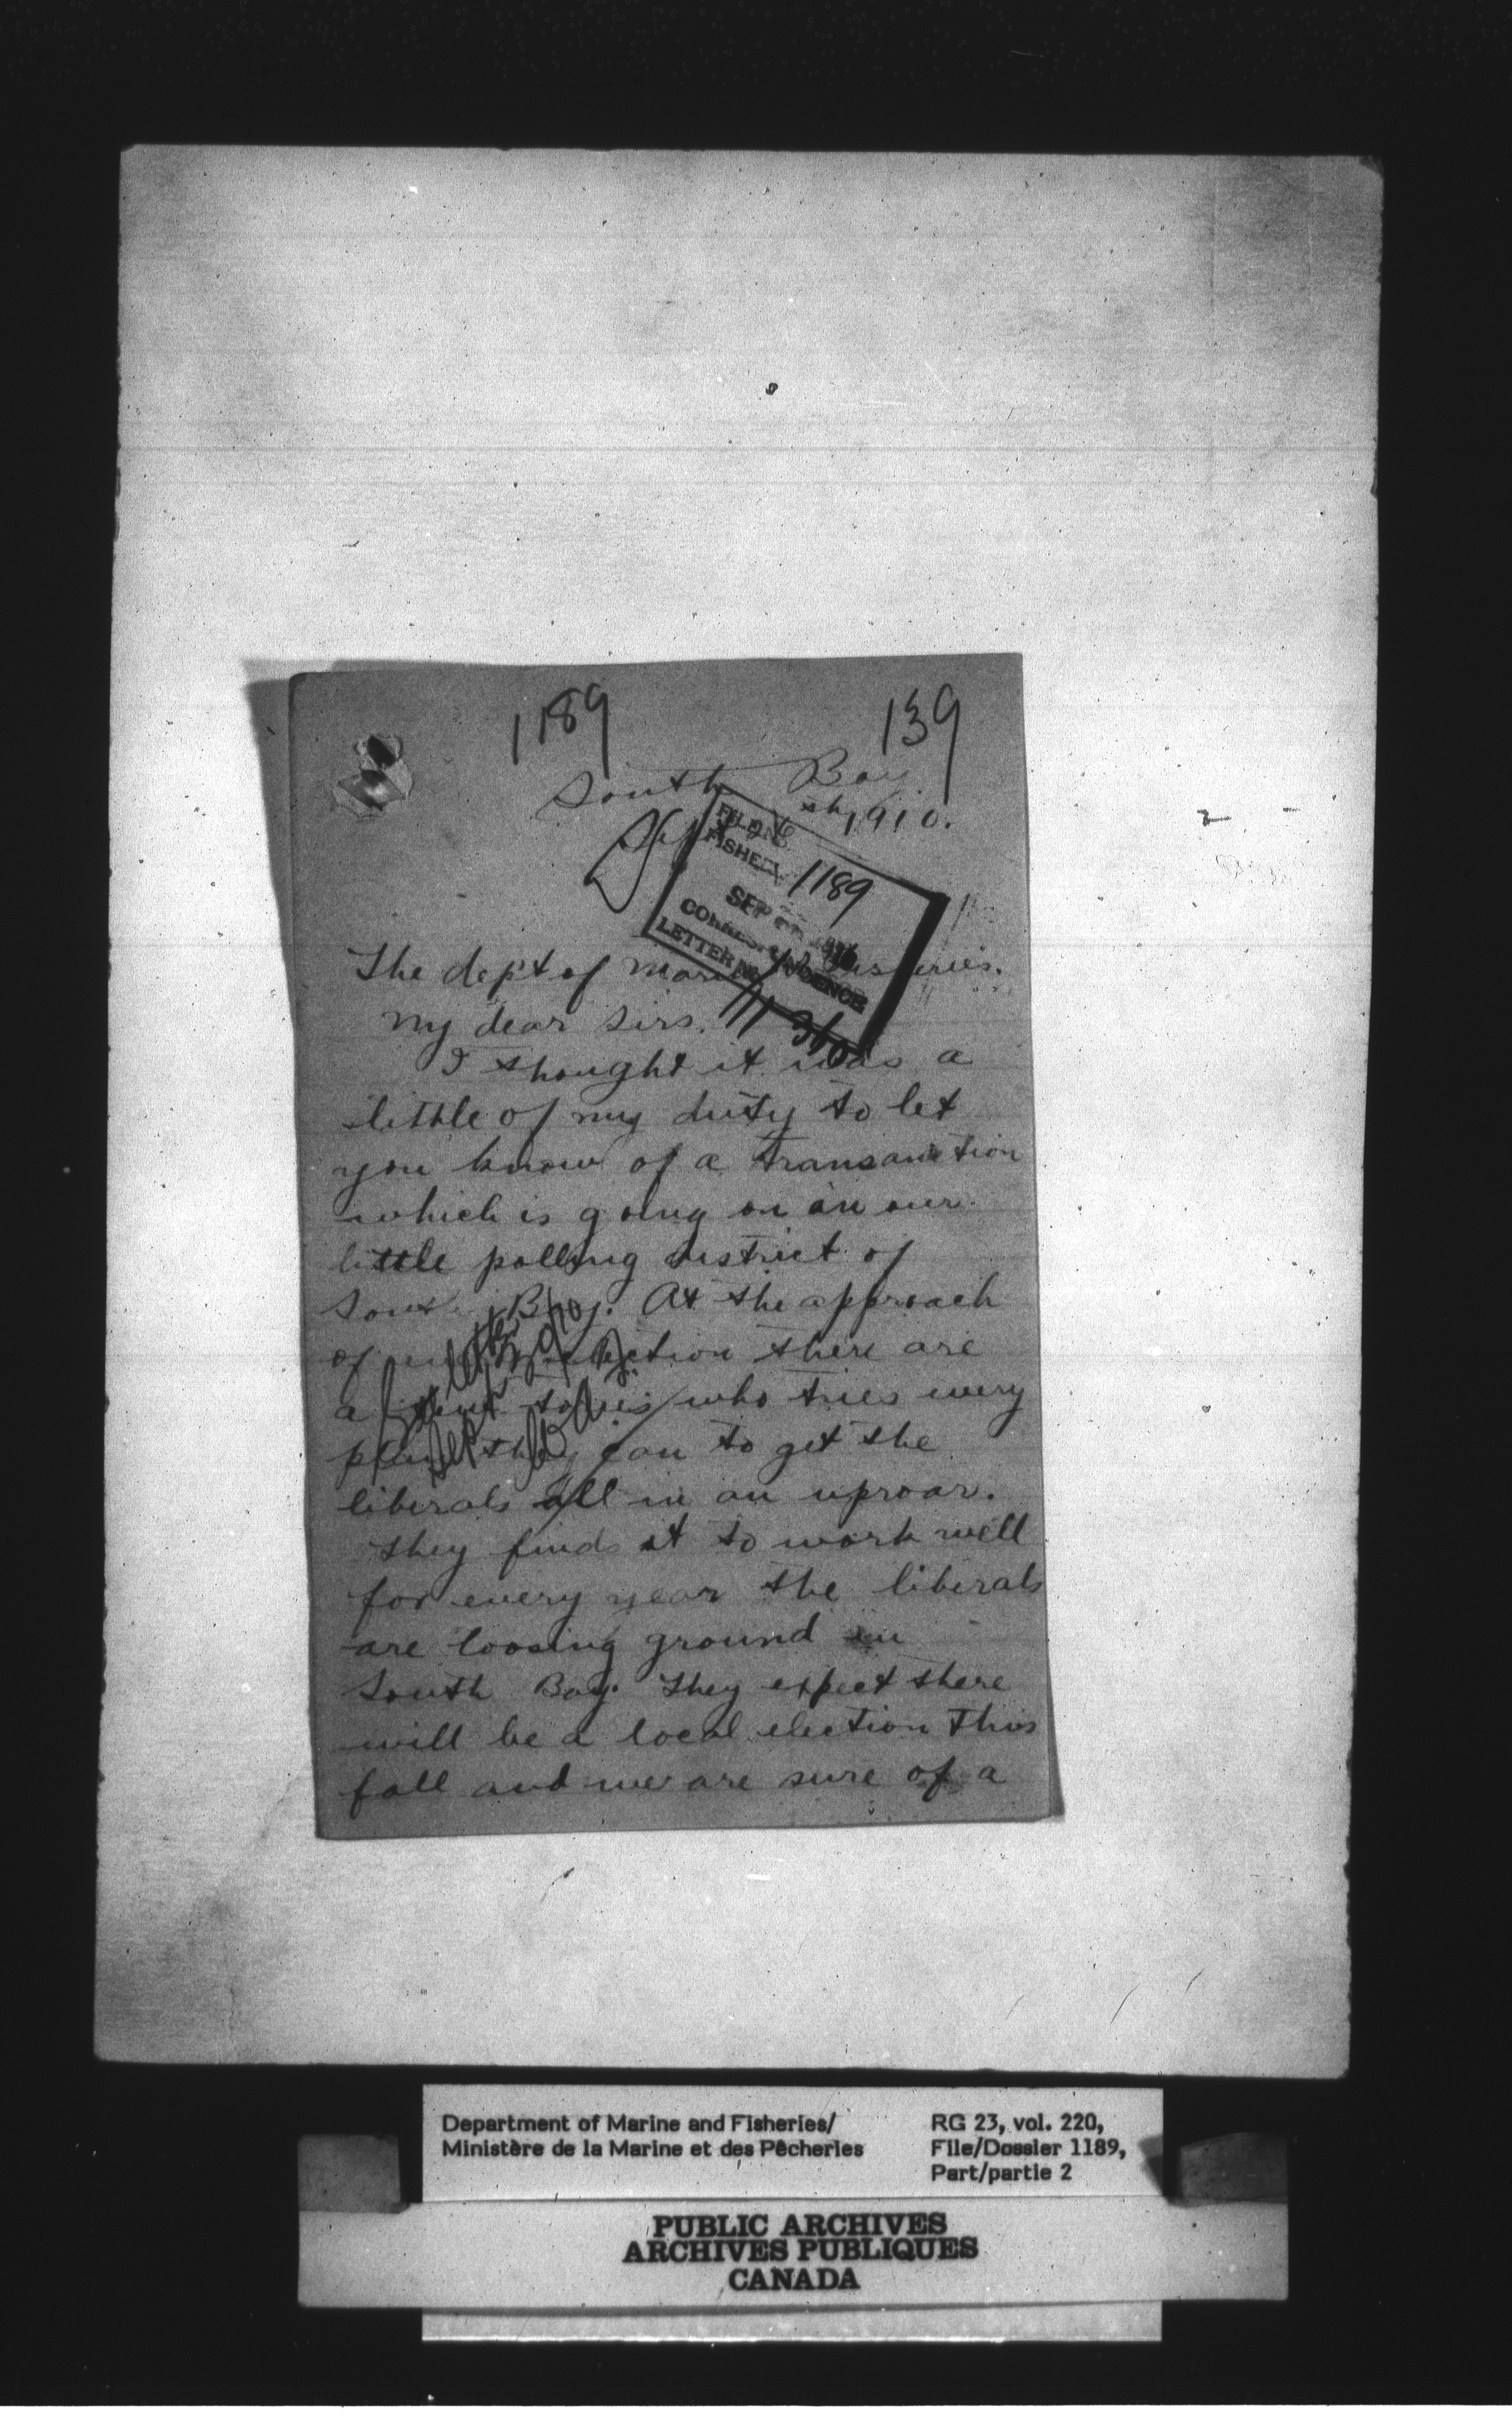 1189 139
South Bay
Sept 1910.
FILE NO.
FISHERY 1189
SEP 1910
CORRESPONDENCE
LETTER NO.
The dep't of Mar Fisheries.
My dear Sirs.
I thought it was a
little of my duty to let
you know of a transanction
which is going on in our
little polling district of
South Bay. At the approach
of election there are
a tories who tries every
plan they can to get the
liberals all in an uproar.
They finds it to work well
for every year the liberals
are loosing ground in
South Bay. They expect there
will be a local election this
fall and we are sure of a
Department of Marine and Fisheries/
Ministère de la Marine et des Pêcheries
RG 23, vol. 220,
File/Dossier 1189,
Part/partie 2
PUBLIC ARCHIVES
ARCHIVES PUBLIQUES
CANADA